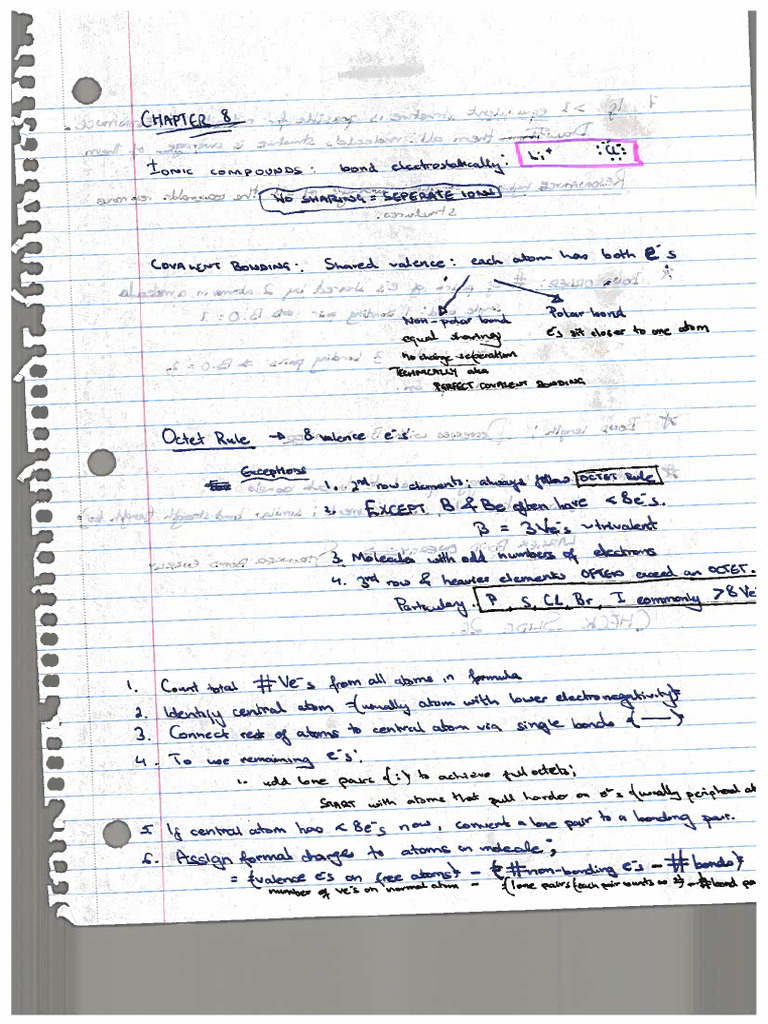 CHAPTER 8
IONIC COMPOUNDS: bond electrostatically: Li+ :Cl:-
NO SHARING = SEPERATE IONS
COVALENT BONDING: Shared valence: each atom has both e-s
Non-polar bond
equal sharing
No charge separation
TECHNICALLY aka
PERFECT COVALENT BONDING
Polar bond
e-s sit closer to one atom
Octet Rule → 8 valence e-s
Exceptions
1. 2nd row elements; always follow OCTET Rule
2. EXCEPT B & Be often have <8e-s.
B = 3Ve-s ~ trivalent
3. Molecules with odd numbers of electrons
4. 3rd row & heavier elements OFTEN exceed an OCTET.
Particulary P, S, Cl, Br, I commonly >8 Ve
1. Count total #Ve-s from all atoms in formula
2. Identify central atom {usually atom with lower electronegativity}
3. Connect rest of atoms to central atom via single bonds {—}
4. To use remaining e-s:
add lone pairs {:} to achieve full octets;
START with atoms that pull harder on e-s {usually peripheral at
5. If central atom has <8e-s now, convert a lone pair to a bonding pair.
6. Assign formal charges to atoms in molecule;
= {valence e-s on free atoms} - {#non-bonding e-s - #bonds}
number of ve-s on normal atom - {lone pairs {each pair counts as 2} - #bond pa